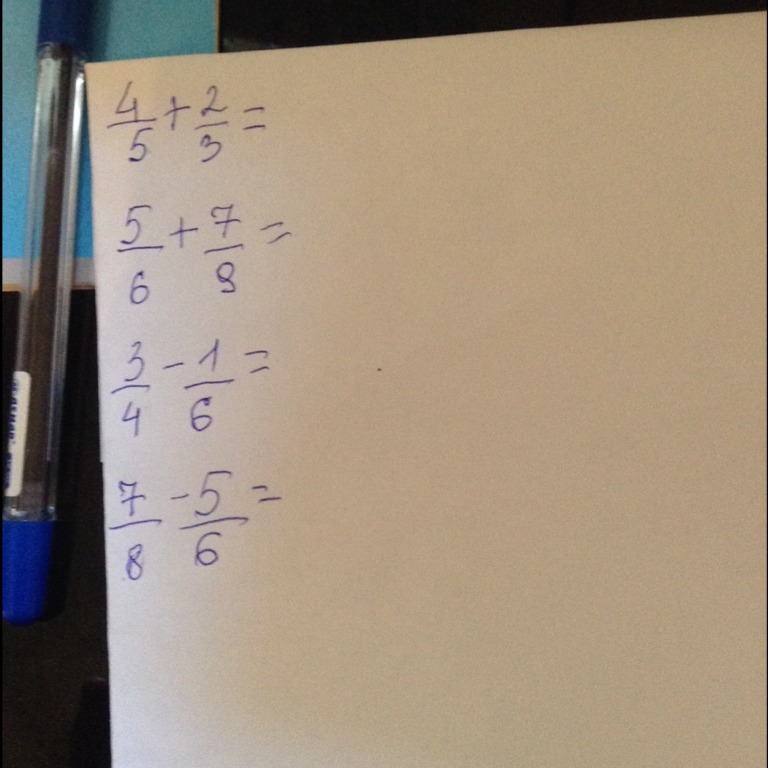 4/5 + 2/3 =
5/6 + 7/9 =
3/4 - 1/6 =
7/8 - 5/6 =